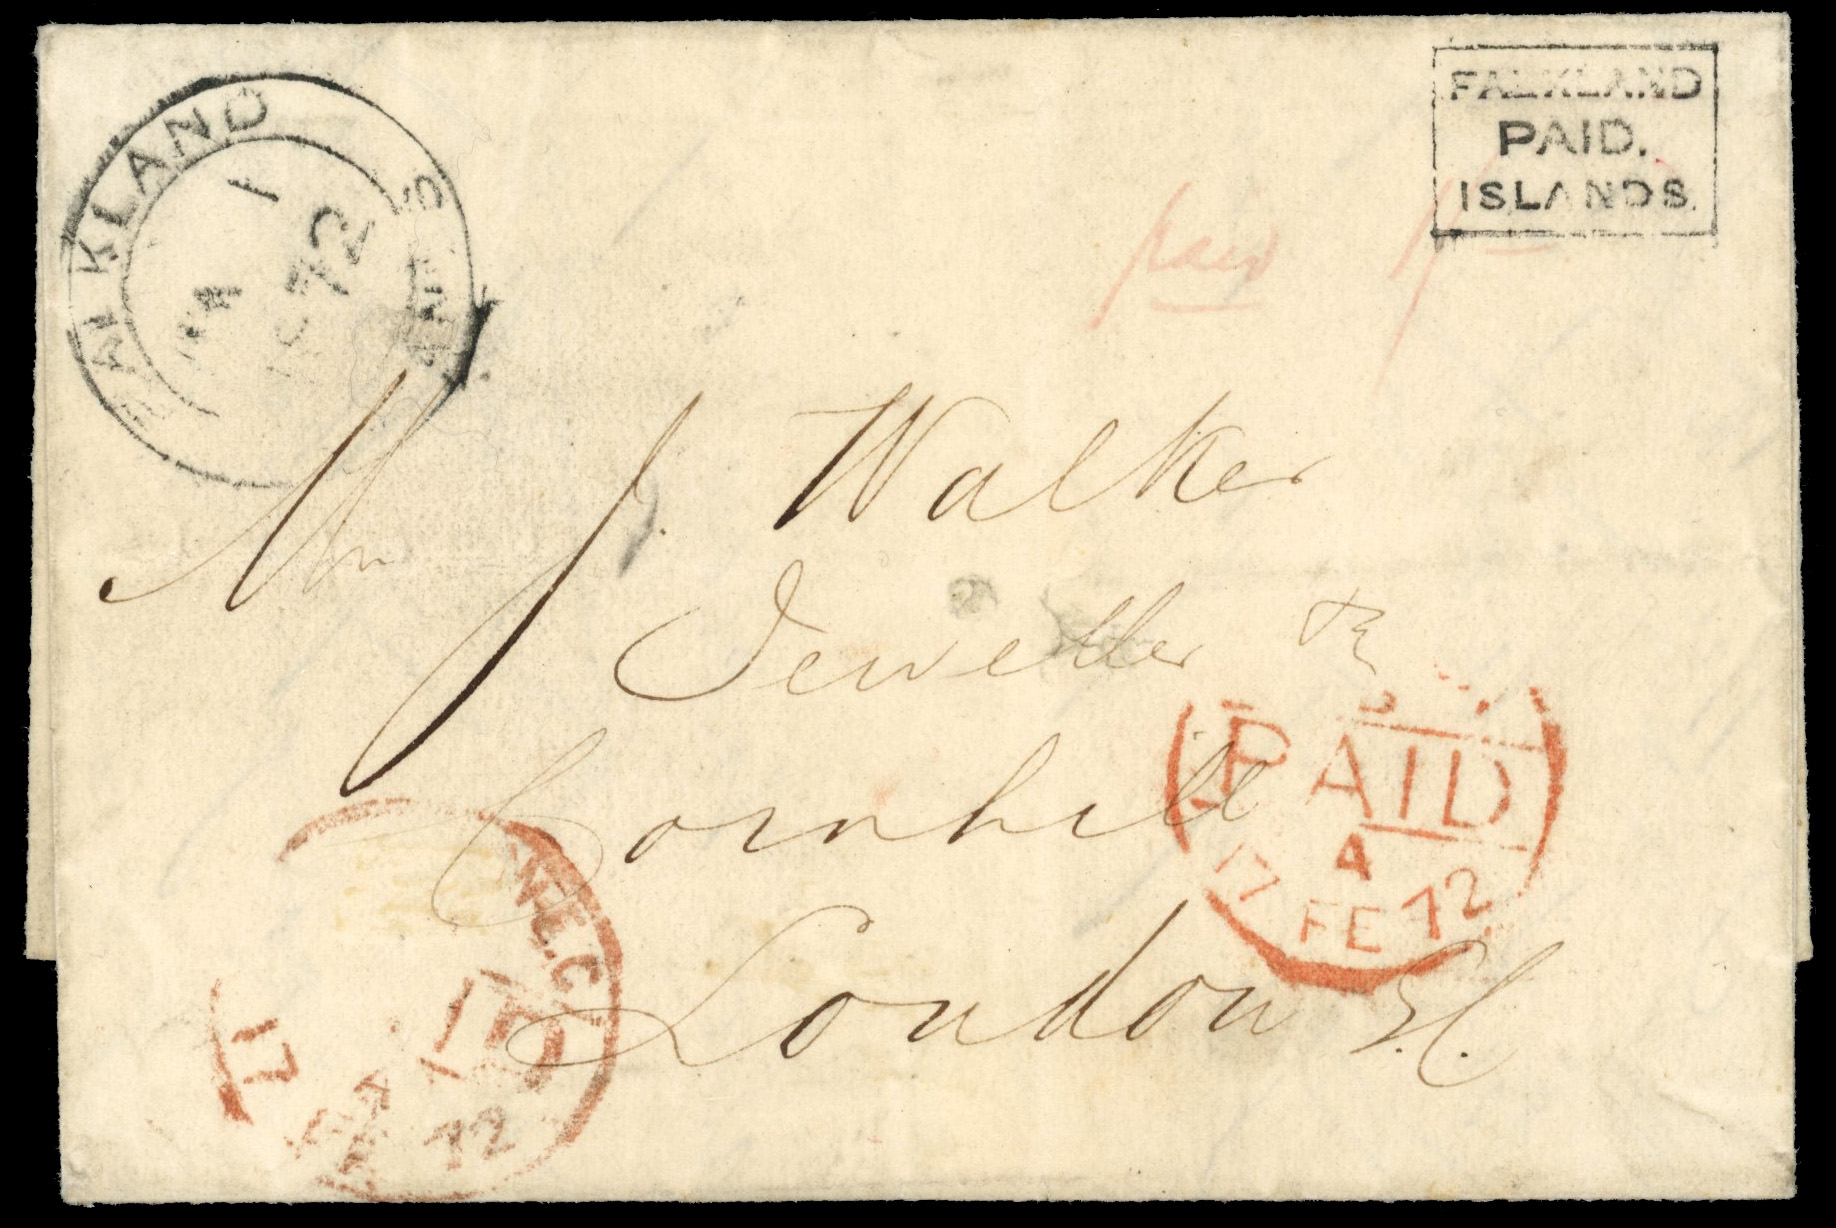 FALKLAND
PAID.
ISLANDS.
FALKLAND
paid 1/-
Mr J. Walker
Jeweller &c
Cornhill
London E.C.
PAID
A
17 FE 72
N.E.C
17 FE 72